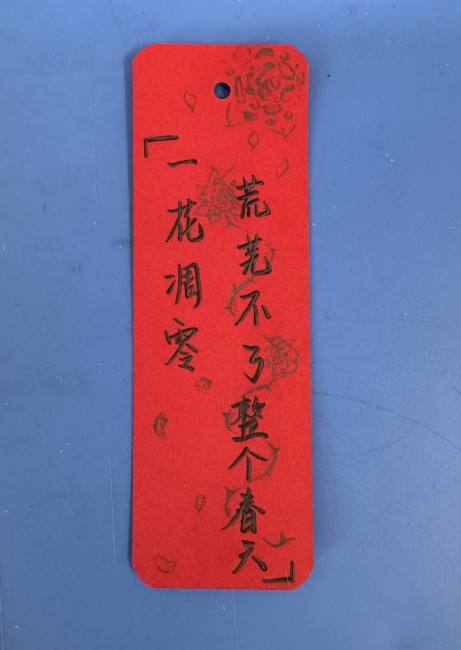 「一花凋零
荒芜不了整个春天」